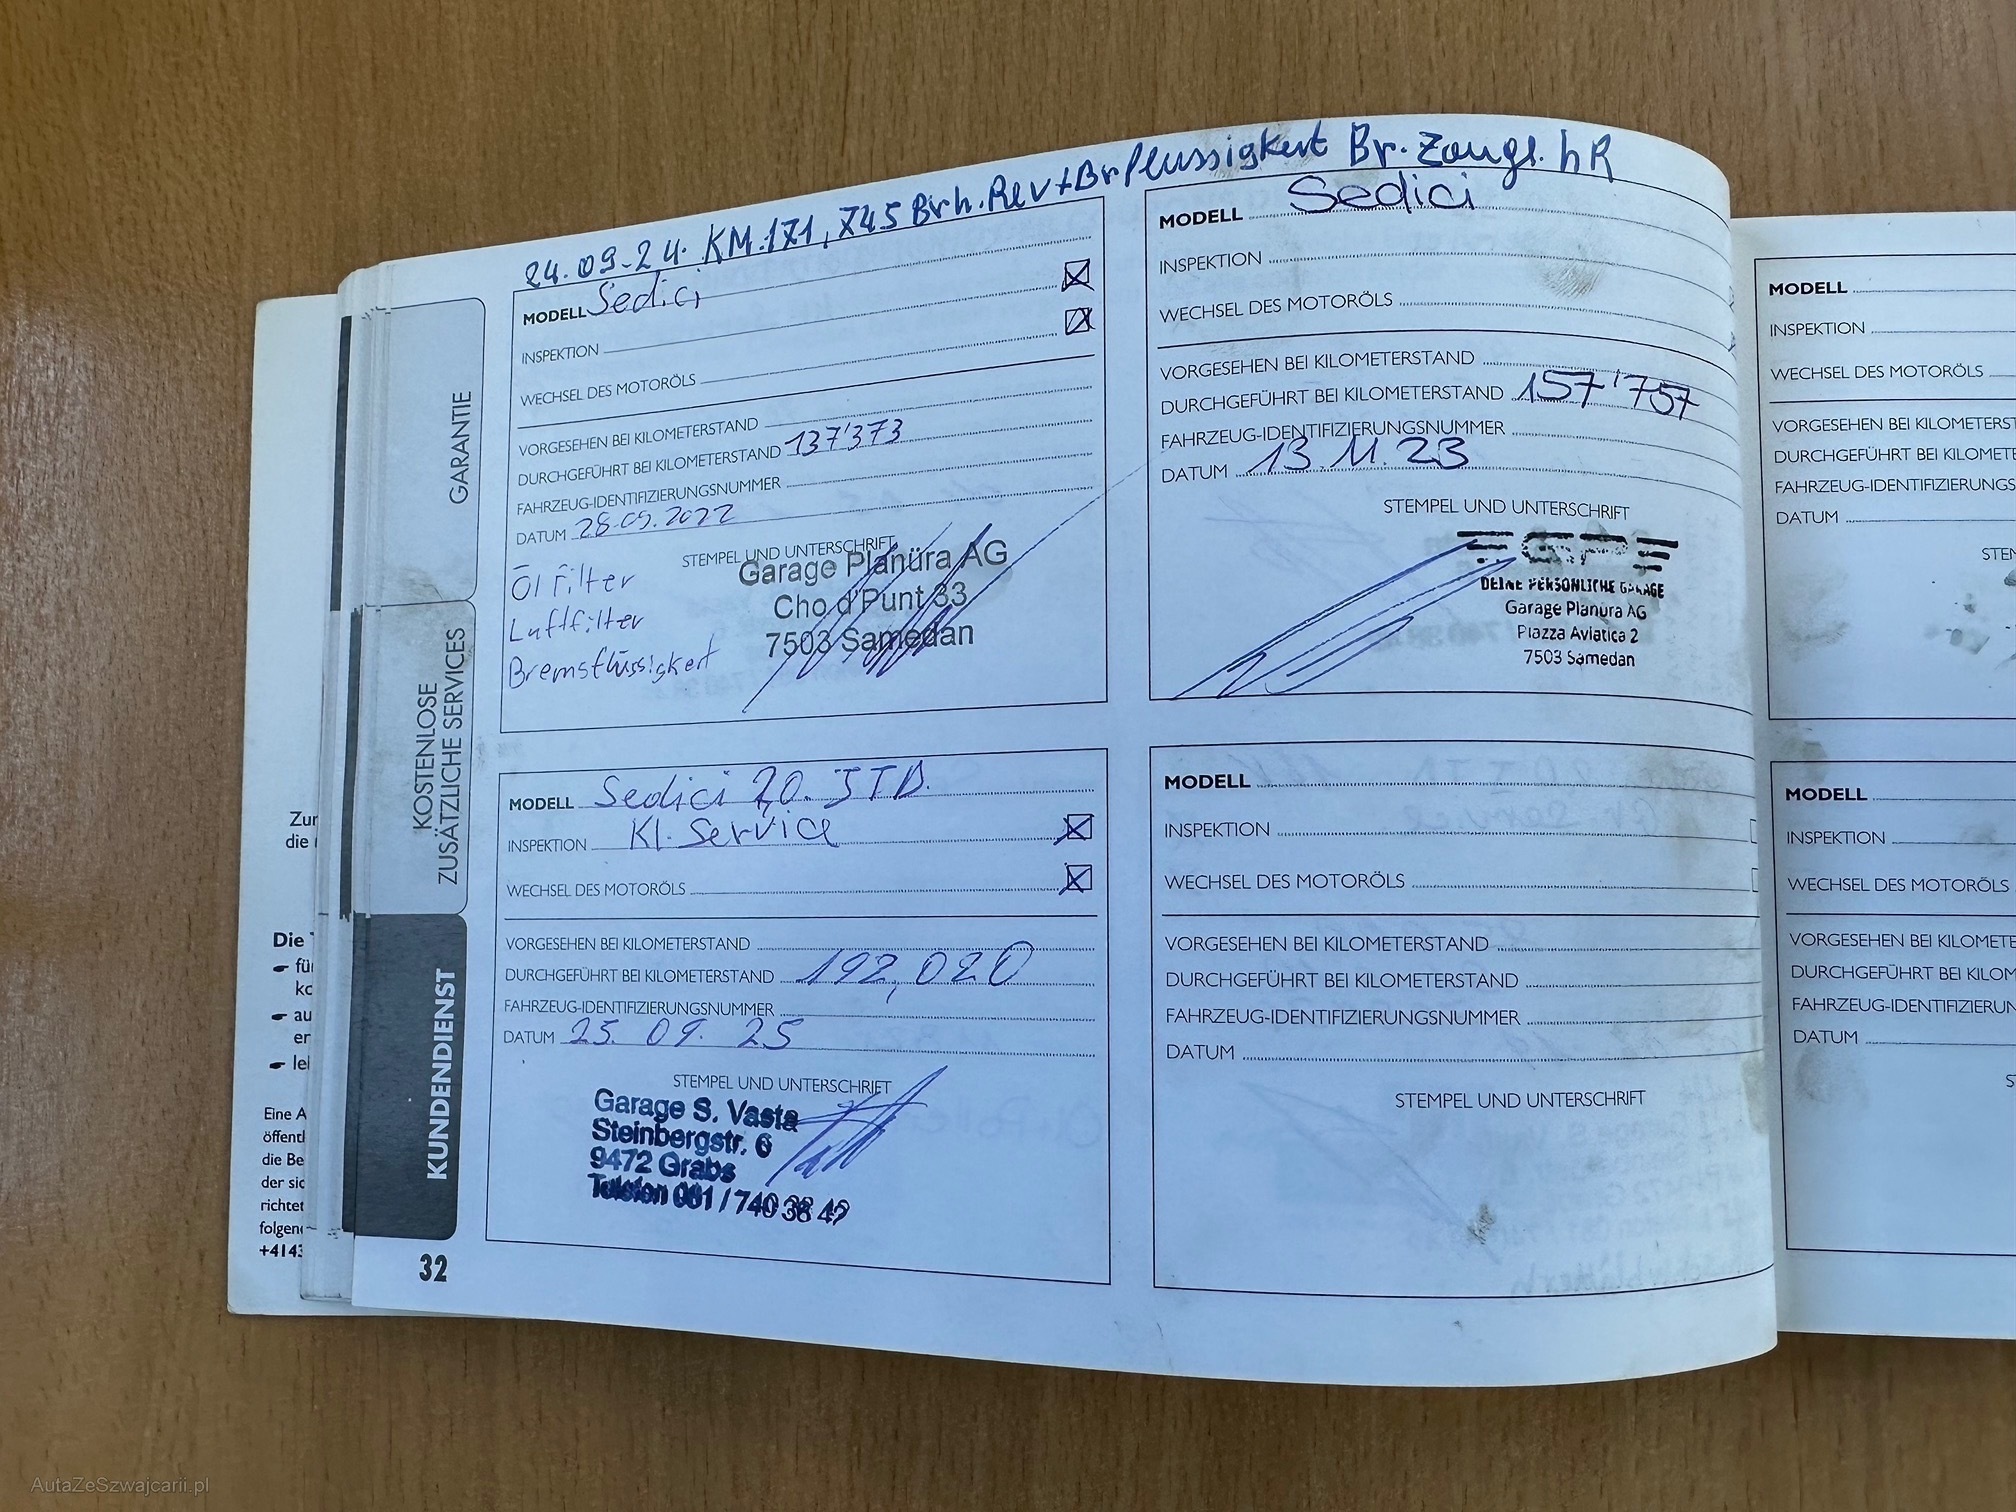 24.09-24. KM.171,745 Brh.Rev+Brflussigkeit Br.Zangl. hR
MODELL Sedici
INSPEKTION
WECHSEL DES MOTORÖLS
VORGESEHEN BEI KILOMETERSTAND
DURCHGEFÜHRT BEI KILOMETERSTAND 137'373
FAHRZEUG-IDENTIFIZIERUNGSNUMMER
DATUM 28.09.2022
STEMPEL UND UNTERSCHRIFT
Öl Filter
Luftfilter
Bremsflüssigkeit
Garage Planüra AG
Cho d'Punt 33
7503 Samedan
MODELL Sedici
INSPEKTION
WECHSEL DES MOTORÖLS
VORGESEHEN BEI KILOMETERSTAND
DURCHGEFÜHRT BEI KILOMETERSTAND 157'757
FAHRZEUG-IDENTIFIZIERUNGSNUMMER
DATUM 13.11.23
STEMPEL UND UNTERSCHRIFT
DEINE PERSÖNLICHE GARAGE
Garage Planüra AG
Piazza Aviatica 2
7503 Samedan
MODELL Sedici 2,0. JTD.
INSPEKTION Kl. Service
WECHSEL DES MOTORÖLS
VORGESEHEN BEI KILOMETERSTAND
DURCHGEFÜHRT BEI KILOMETERSTAND 192,020
FAHRZEUG-IDENTIFIZIERUNGSNUMMER
DATUM 25. 09. 25
STEMPEL UND UNTERSCHRIFT
Garage S. Vasta
Steinbergstr. 6
9472 Grabs
Telefon 081 / 740 38 42
MODELL
INSPEKTION
WECHSEL DES MOTORÖLS
VORGESEHEN BEI KILOMETERSTAND
DURCHGEFÜHRT BEI KILOMETERSTAND
FAHRZEUG-IDENTIFIZIERUNGSNUMMER
DATUM
STEMPEL UND UNTERSCHRIFT
MODELL
INSPEKTION
WECHSEL DES MOTORÖLS
VORGESEHEN BEI KILOMETERST
DURCHGEFÜHRT BEI KILOMETE
FAHRZEUG-IDENTIFIZIERUNGS
DATUM
STEM
MODELL
INSPEKTION
WECHSEL DES MOTORÖLS
VORGESEHEN BEI KILOMETE
DURCHGEFÜHRT BEI KILOM
FAHRZEUG-IDENTIFIZIERUN
DATUM
S
GARANTIE
KOSTENLOSE
ZUSÄTZLICHE SERVICES
KUNDENDIENST
32
Zur
die
Die
für
ko
au
er
lei
Eine A
öffentl
die Be
der sic
richtet
folgen
+4143
AutaZeSzwajcarii.pl